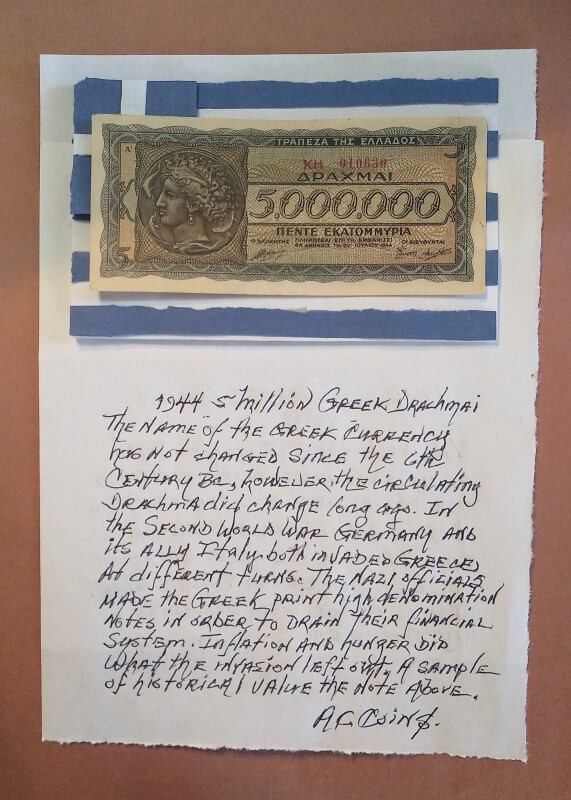 ΤΡΑΠΕΖΑ ΤΗΣ ΕΛΛΑΔΟΣ
Α'
010630
ΔΡΑΧΜΑΙ
5.000.000
ΠΕΝΤΕ ΕΚΑΤΟΜΜΥΡΙΑ
Ο ΔΙΟΙΚΗΤΗΣ ΠΛΗΡΩΤΕΑΙ ΕΠΙ ΤΗ ΕΜΦΑΝΙΣΕΙ ΟΙ ΔΙΕΥΘΥΝΤΑΙ
ΕΝ ΑΘΗΝΑΙΣ ΤΗ 20ῌ ΙΟΥΛΙΟΥ 1944
5
1944 5 Million GREEK DRACHMAI
The NAME of the GREEK CURRENCY
has NOT changed SINCE the 6th
CENTURY BC, however the circulating
DRACHMA did change long ago. IN
the SECOND WORLD WAR GERMANY AND
its ALLY Italy both invaded GREECE,
At different turns. The NAZI officials
MADE the GREEK print high denomination
NOTES IN order to DRAIN their financial
System. Inflation AND hunger DID
What the invasion left out. A SAMPLE
of historical value the note Above.
A C Coins.